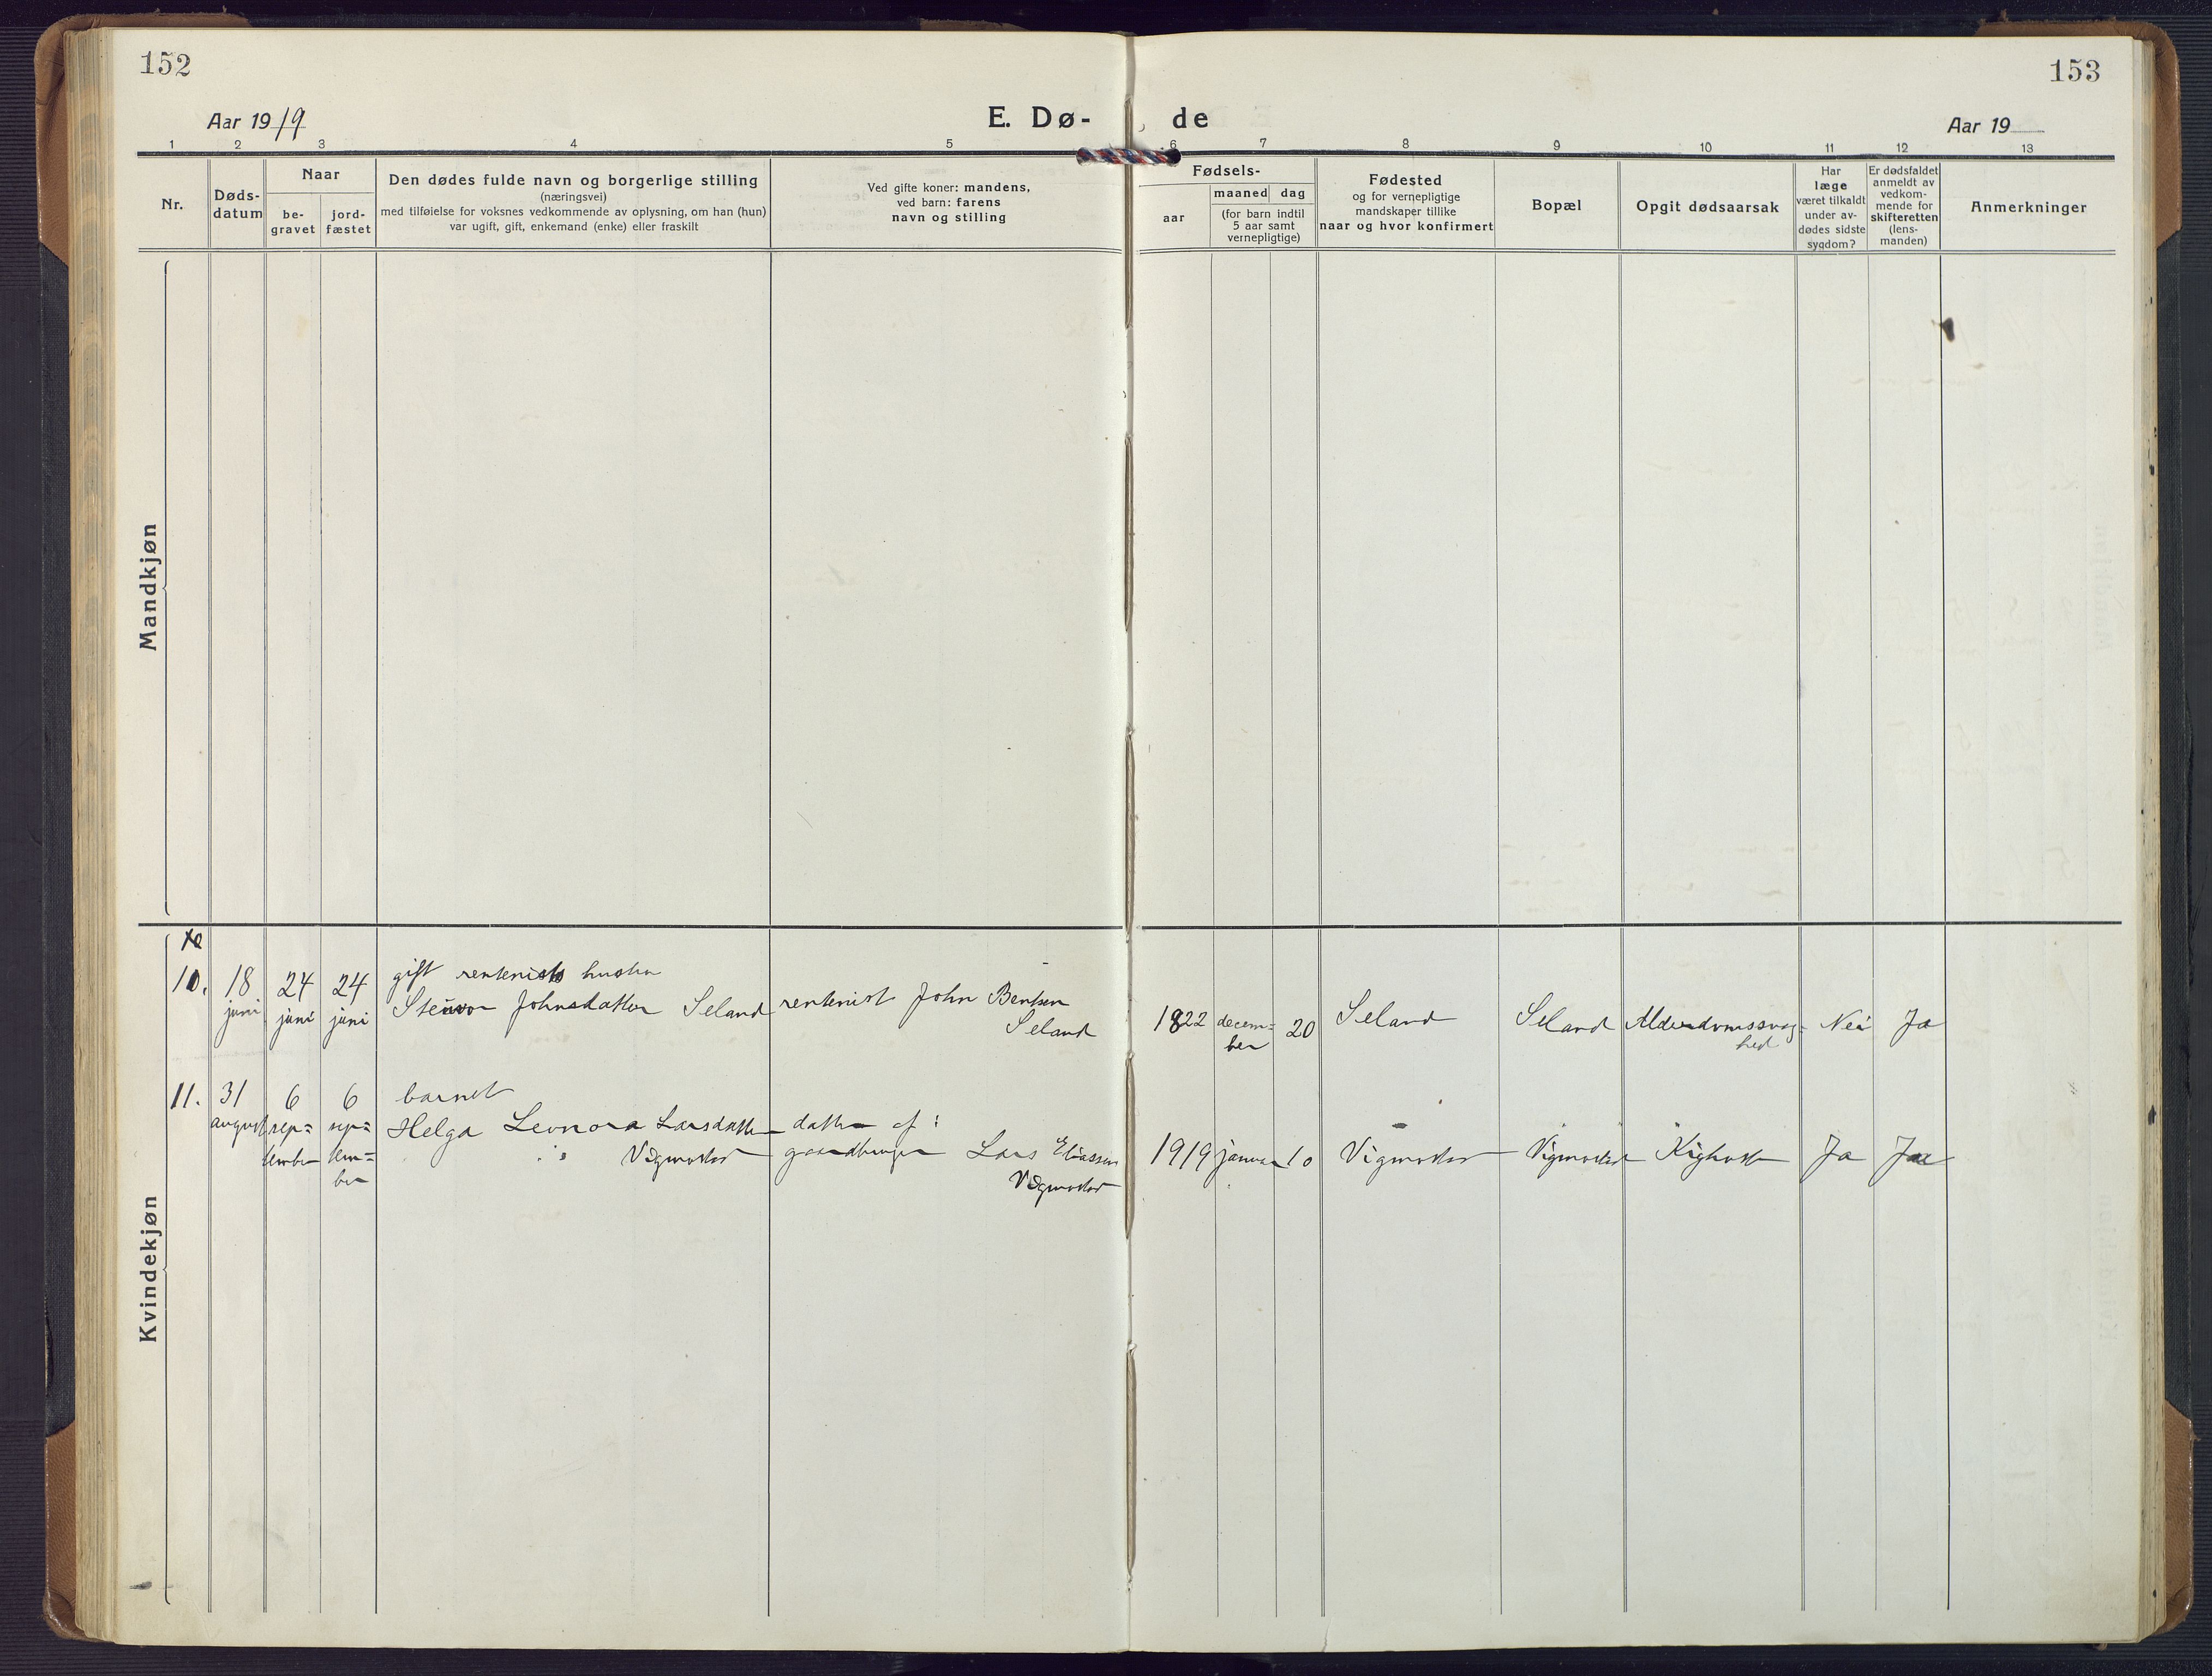 152
153
Aar 1919
E. Dø-
de
Aar 19
1 2 3 4 5 6 7 8 9 10 11 12 13
Nr.
Døds-
datum
Naar
be-
gravet
jord-
fæstet
Den dødes fulde navn og borgerlige stilling
(næringsvei)
med tilføielse for voksnes vedkommende av oplysning, om han (hun)
var ugift, gift, enkemand (enke) eller fraskilt
Ved gifte koner: mandens,
ved barn: farens
navn og stilling
Fødsels-
aar
maaned dag
(for barn indtil
5 aar samt
vernepligtige)
Fødested
og for vernepligtige
mandskaper tillike
naar og hvor konfirmert
Bopæl
Opgit dødsaarsak
Har
læge
været tilkaldt
under av-
dødes sidste
sygdom?
Er dødsfaldet
anmeldt av
vedkom-
mende for
skifteretten
(lens-
manden)
Anmerkninger
Mandkjøn
Kvindekjøn
10.
18
juni
24
juni
24
juni
gift rentenists hustru
Johnsdatter Seland
rentenist John Bentsen
Seland
1822
decem=
ber
20
Seland
Seland
Alderdomssvag=
hed
Nei
Ja
11.
31
august
6
sep=
tember
6
sep=
tem=
ber
barnet
Helga Leonora Larsdatter
Vigmostad
datter af:
gaardbruger Lars Eliassen
Vigmostad
1919
januar
10
Vigmostad
Vigmostad
Kighoste
Ja
Ja